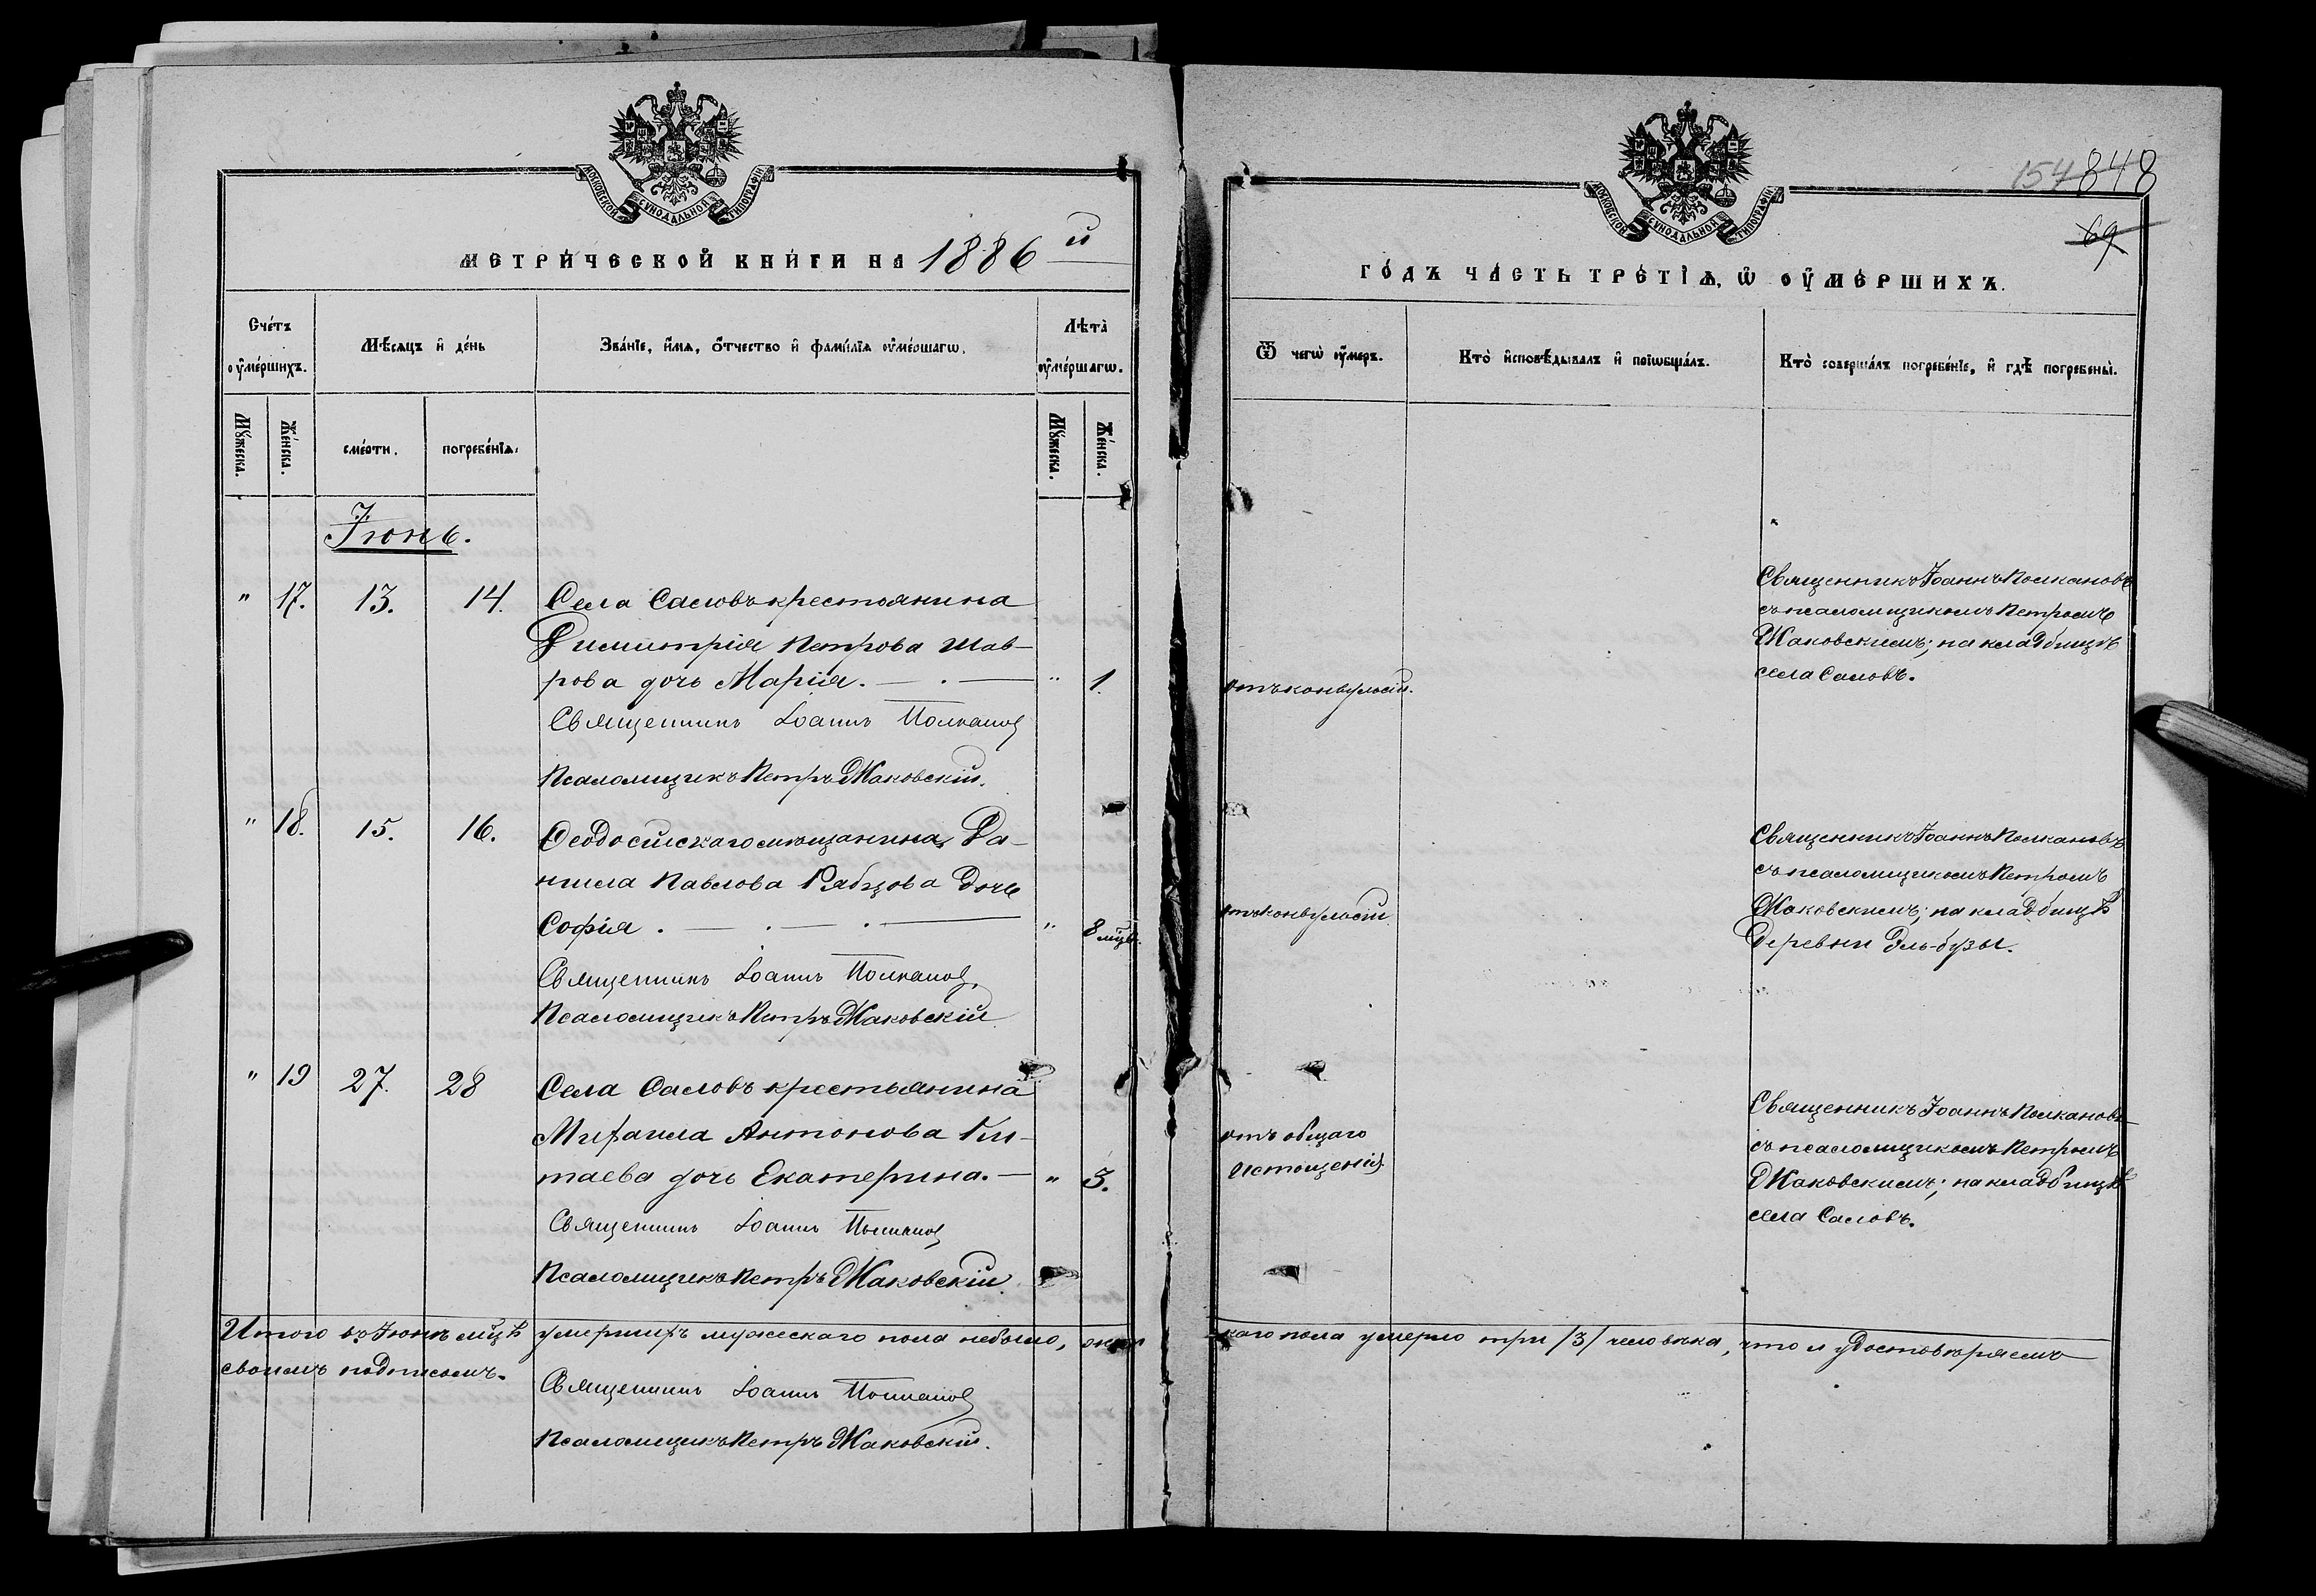 МОСКОВСКОЙ СѴНОДАЛЬНОЙ ТИПОГРАФІИ
МЕТРИ́ЧЕСКОЙ КНИ́ГИ НА 1886 й
Сче́тъ ᲂу҆ме́ршихъ.
Мѣ́сяцъ и҆ де́нь
Зва́нїе, и҆́мѧ, ѻ҆́тчество и҆ фами́лїѧ ᲂу҆ме́ршагѡ.
Лѣта̀ ᲂу҆ме́ршагѡ.
Мꙋ́жеска.
Же́нска.
сме́рти.
погребе́нїѧ.
Мꙋ́жеска.
Же́нска.
Іюнь.
" 17. 13. 14. Села Саловъ крестьянина
Димитрія Петрова Шав-
рова дочь Марія. " 1.
Священникъ Іоаннъ Полканов
Псаломщикъ Петръ Жаковскій.
" 18. 15. 16. Ѳеодосійскаго мѣщанина Да-
ниила Павлова Рябцова дочь
Софія. " 8 мцв.
Священникъ Іоаннъ Полканов.
Псаломщикъ Петръ Жаковскій
" 19 27. 28 Села Саловъ крестьянина
Михаила Антонова Ки-
таева дочь Екатерина. " 3.
Священникъ Іоаннъ Полканов
Псаломщикъ Петръ Жаковскій
Итого въ Іюнѣ мцѣ умершихъ мужескаго пола небыло,
своимъ подписомъ.
Священникъ Іоаннъ Полканов
Псаломщикъ Петръ Жаковскій.
МОСКОВСКОЙ СѴНОДАЛЬНОЙ ТИПОГРАФІИ
154 848
69
ГО́ДЪ ЧА́СТЬ ТРЕ́ТІѦ, Ѡ҆ ОУ҆МЕ́РШИХЪ.
Ѿ чегѡ̀ ᲂу҆́меръ.
Кто̀ и҆сповѣ́дывалъ и҆ прїѡбща́лъ.
Кто̀ соверша́лъ погребе́нїе, и҆ гдѣ̀ погребены̀.
Священникъ Іоаннъ Полкановъ
съ псаломщикомъ Петромъ
Жаковскимъ; на кладбищѣ
села Саловъ.
отъ конвульсій.
Священникъ Іоаннъ Полкановъ
съ псаломщикомъ Петромъ
Жаковскимъ; на кладбищѣ
деревни Эль-бузы.
отъ конвульсій
Священникъ Іоаннъ Полкановъ
съ псаломщикомъ Петромъ
Жаковскимъ; на кладбищѣ
села Саловъ.
отъ общаго
истощенія
каго пола умерло три /3/ человѣка, что и удостовѣряемъ